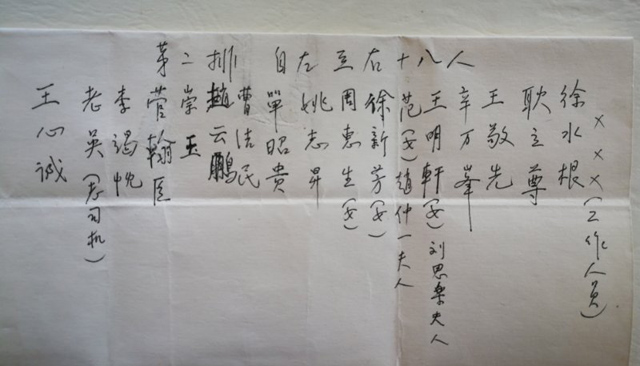 苐二排 自左至右十八人
王心诚
老吴(老司机)
李竭忱
菅翰臣
崇玉
趙云鹏
曹洁民
單昭贵
姚志昇
周惠生(女)
徐新芳(女)
范(女)趙仲一夫人
王明軒(女)刘思 夫人
辛万峯
王敬先
耿立尊
徐水根
×××(工作人员)